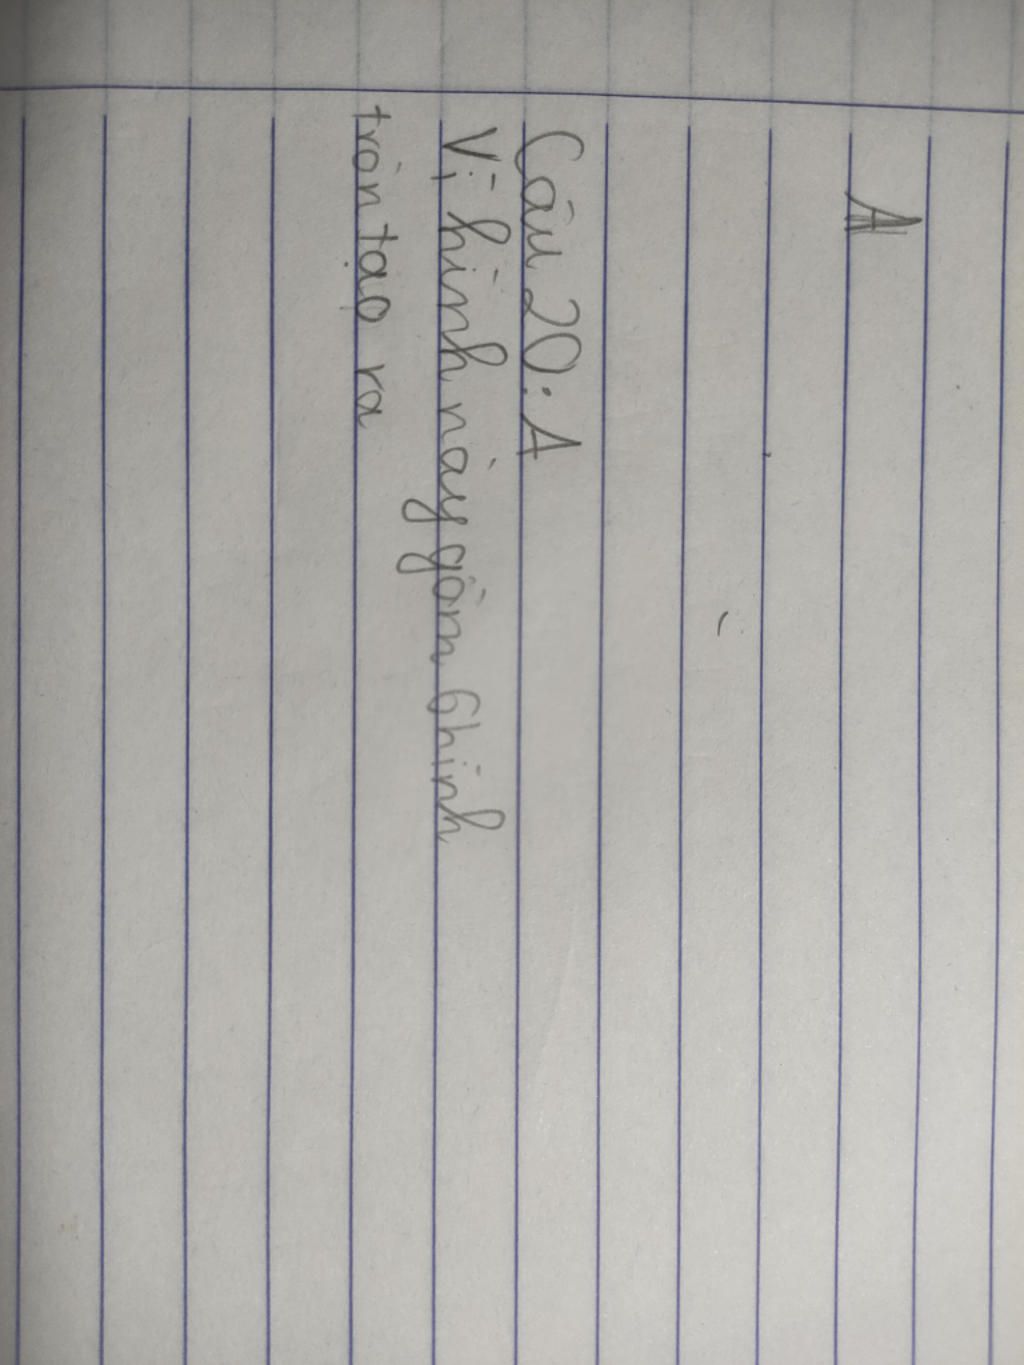 A
Câu 20: A
Vì hình này gồm 6 hình
tròn tạo ra